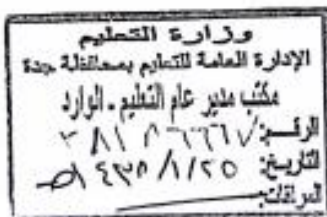 وزارة التعليم
الإدارة العامة للتعليم بمحافظة جدة
مكتب مدير عام التعليم - الوارد
الرقم:
التاريخ: ١٤٣٨/١/٢٥ هـ
المرفقات: